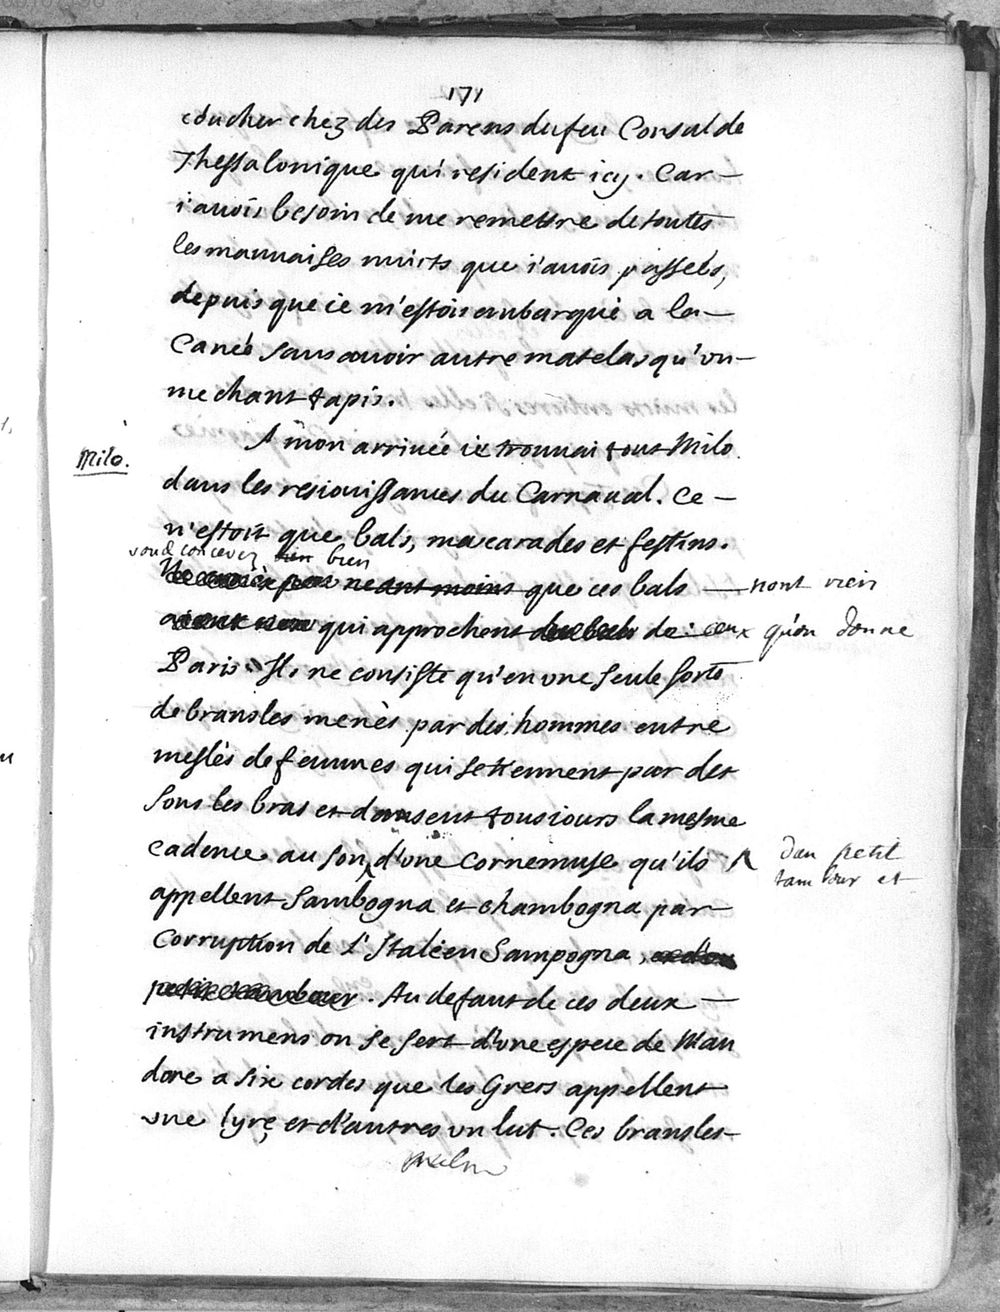 171
coucher chez des Parens du feu Consul de
Thessalonique qui resident icy. Car —
i'avois besoin de me remettre de toutes
les mauvaises nuicts que i'avois passeés,
depuis que ie m'estois embarqué a la —
Caneé sans avoir autre matelas qu'un —
mechant tapis.
A mon arriueé ie trouuai tout Milo
Milo.
dans les resiouissances du Carnaval. Ce —
n'estoit que bals, mascarades et festins.
vous concevez bien
neantmoins que ces bals — nont rien
qui approchent de ceux qu'on donne
Paris. Ils ne consiste qu'en une seule sorte
de bransles menès par des hommes entre
meslès de femmes qui se tiennent par des
sous les bras et dansent tousiours la mesme
cadence au son d'une Cornemuse qu'ils
dun petit
tambour et
appellent Sambogna et chambogna par
Corruption de l'Italien Sampogna,
petit tambour. Au defaut de ces deux —
instrumens on se sert d'une espece de Man
dore a six cordes que les Grecs appellent
une lyre et d'autres un lut. Ces bransles